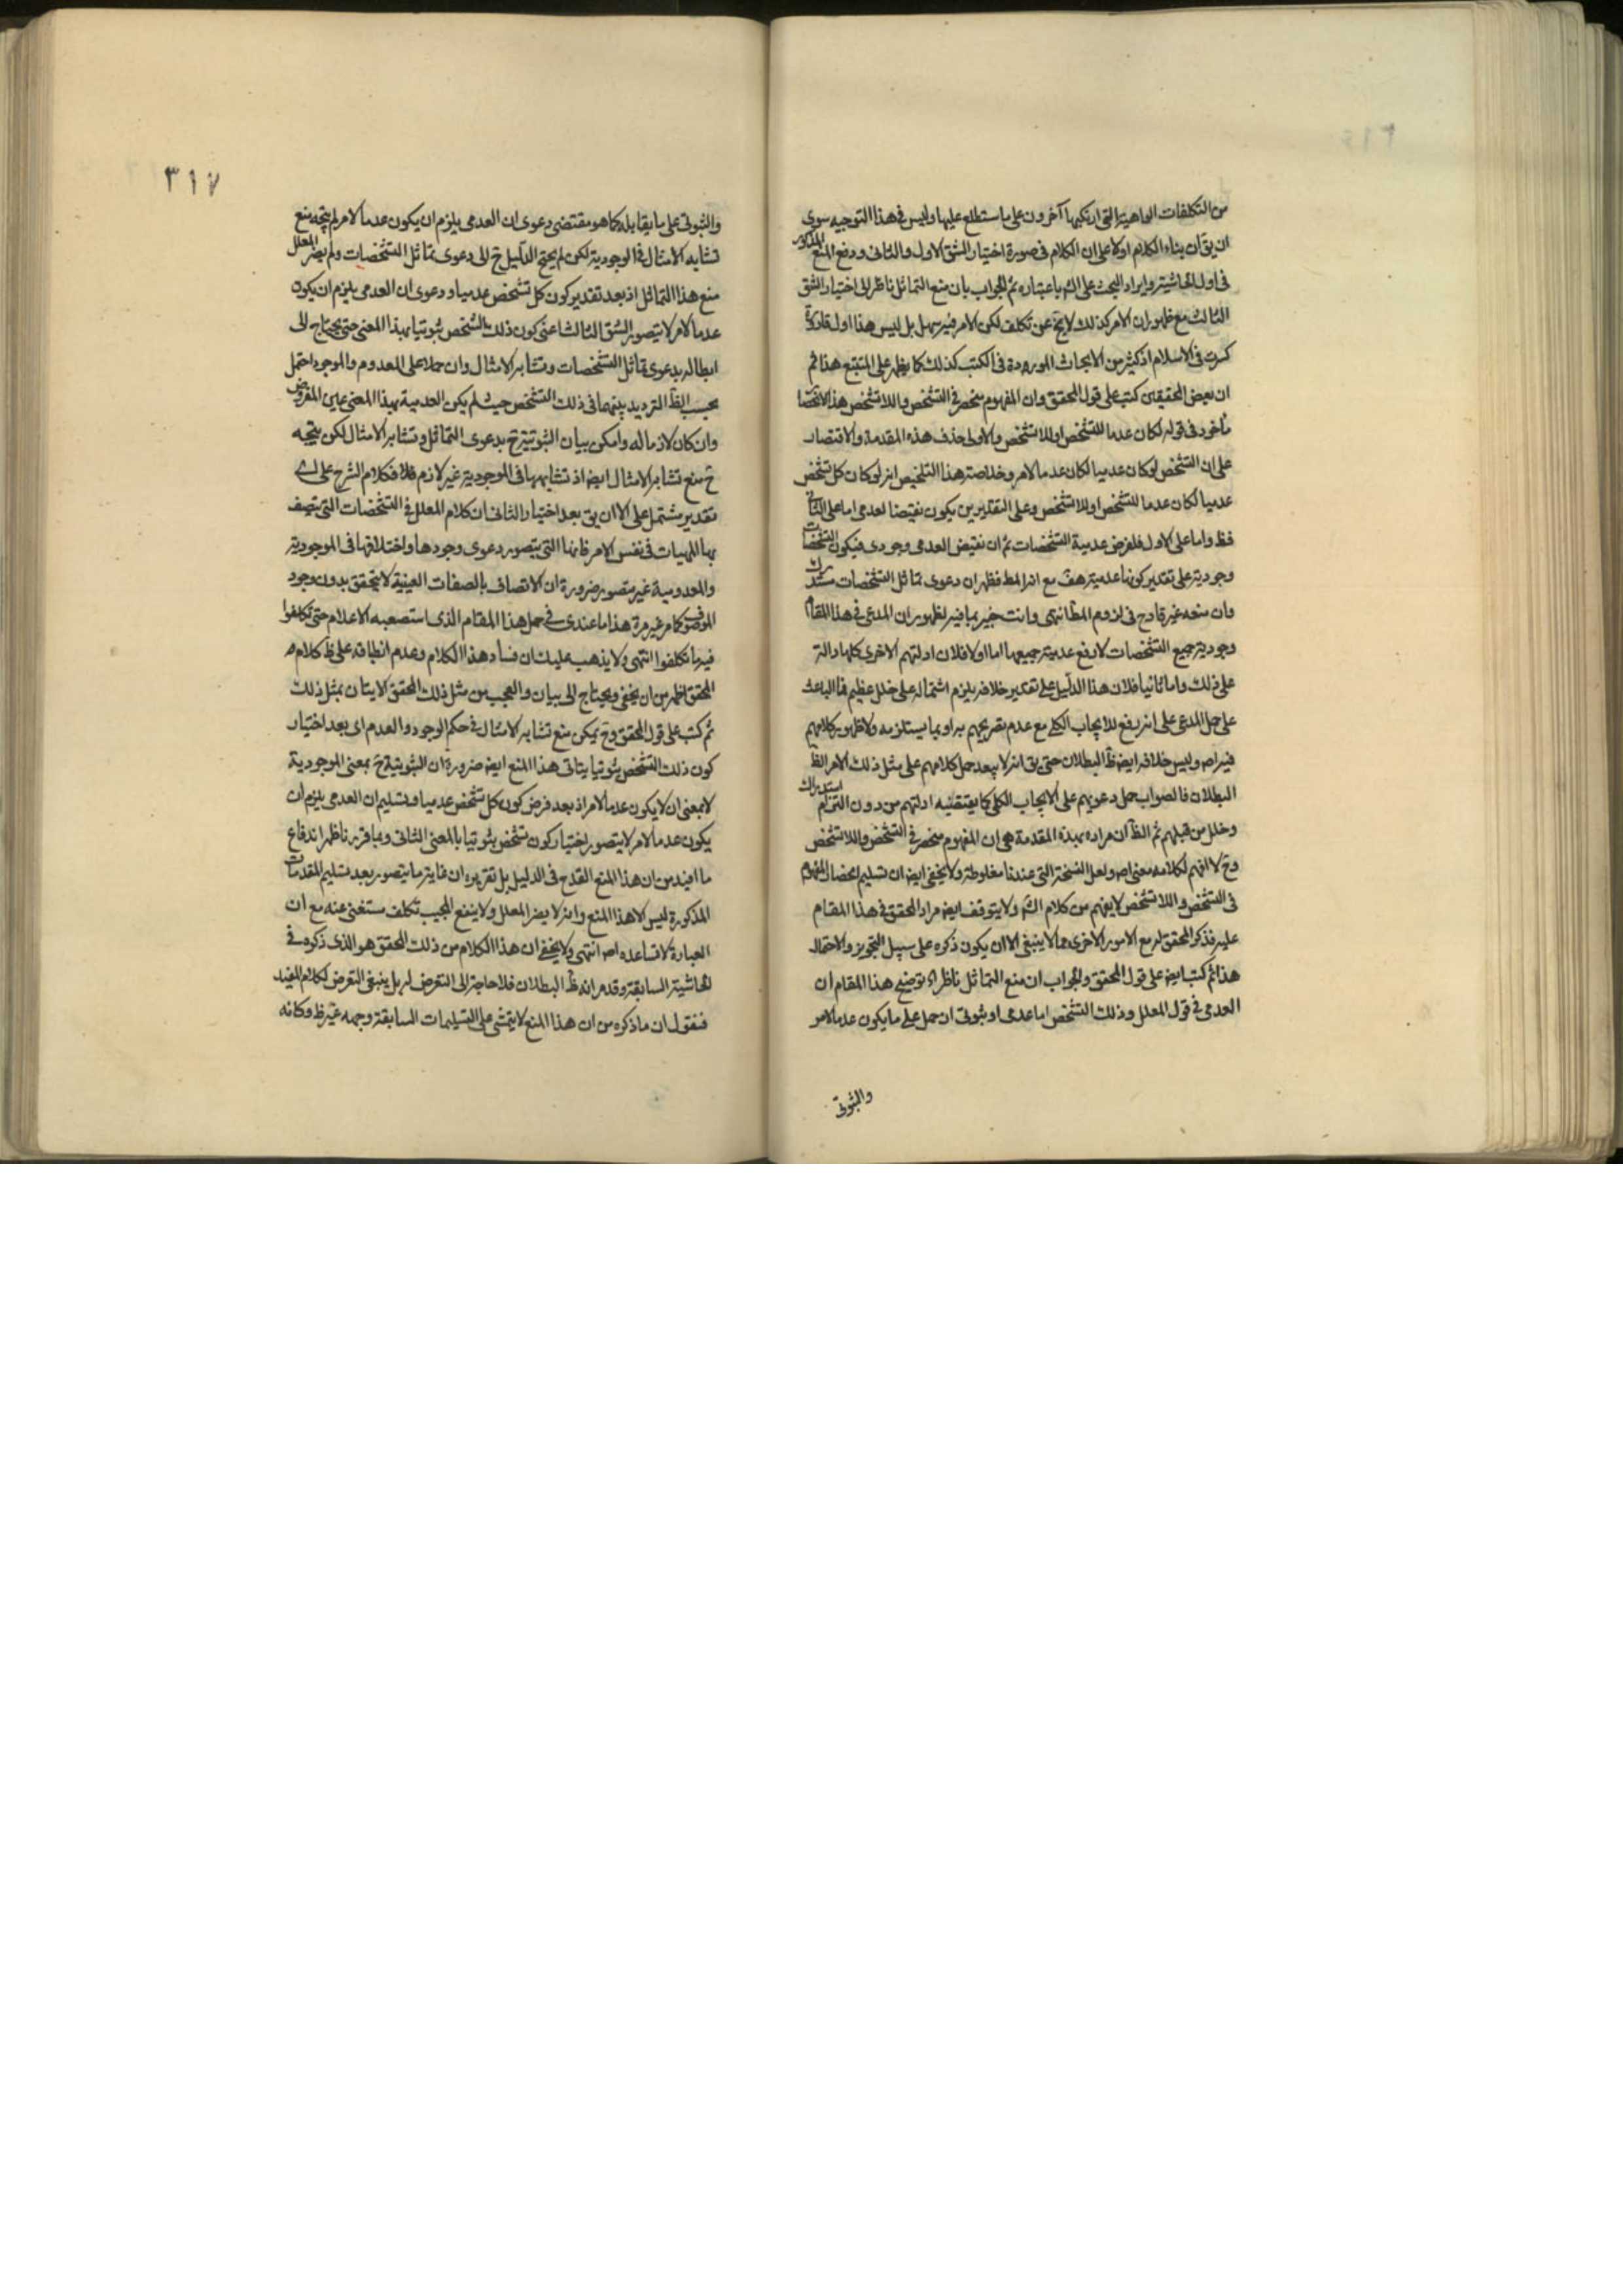 من التكلفات الواهية التى ارتكبها آخرون على ما ستطلع عليها وليس فى هذا التوجيه سوى
ان يق ان بناء الكلام اولا على ان الكلام فى صورة اختيار الشق الاول والثانى ودفع المنع المذكور
فى اول الحاشية وايراد البحث على الش باعتباره ثم الجواب بان منع التماثل ناظر الى اختيار الشق
الثالث مع ظهور ان الامر كذلك لا يخ عن تكلف لكن الامر فيه سهل بل ليس هذا اول قارورة
كسرت فى الاسلام اذ كثير من الابحاث الموردة فى الكتب كذلك كما يظهر على المتتبع هذا ثم
ان بعض المحققين كتب على قول المحقق وان المفهوم منحصر فى التشخص واللاتشخص هذا الانحصا
مأخوذ فى قوله لكان عدما للتشخص او للاتشخص والاولى حذف هذه المقدمة والاقتصار
على ان التشخص لو كان عدميا لكان عدما لامر وخلاصة هذا التلخيص انه لو كان كل تشخص
عدميا لكان عدما للتشخص او للاتشخص وعلى التقديرين يكون نقيضا لعدمى اما على الثانى
فظ واما على الاول فلفرض عدمية التشخصات ثم ان نقيض العدمى وجودى فيكون التشخصات
وجودية على تقدير كونها عدمية هف مع انه المط فظهر ان دعوى تماثل التشخصات مستدرك
وان منعه غير قادح فى لزوم المط انتهى وانت خبير بما فيه لظهور ان المدعى فى هذا المقام
وجودية جميع التشخصات لا رفع عدمية جميعها اما اولا فلان ادلتهم الاخرى كلها دالة
على ذلك واما ثانيا فلان هذا الدليل على تقدير خلافه يلزم اشتماله على خلل عظيم فما الباعث
على حمل المدعى على انه رفع للايجاب الكلى مع عدم تصريحهم به او بما يستلزمه ولا ظهور كلامهم
فيه اص وليس خلافه ايض ظ البطلان حتى يق انه لا يبعد حمل كلامهم على مثل ذلك الامر الظ
البطلان فالصواب حمل دعويهم على الايجاب الكلى كما يقتضيه ادلتهم من دون التزام استدراك
وخلل من قبلهم ثم الظ ان مراده بهذه المقدمة هى ان المفهوم منحصر فى التشخص واللاتشخص
وح لا افهم لكلامه معنى اص ولعل النسخة التى عندنا مغلوطة ولا يخفى ايض ان تسليم انحصار المفهوم
فى التشخص واللاتشخص لا يفهم من كلام الش ولا يتوقف ايض مراد المحقق فى هذا المقام
عليه فذكر المحقق له مع الامور الاخرى مما لا ينبغى الا ان يكون ذكره على سبيل التجويز والاحتمال
هذا ثم كتب ايض على قول المحقق والجواب ان منع التماثل ناظر اه توضيح هذا المقام ان
العدمى فى قول المعلل وذلك التشخص اما عدمى او ثبوتى ان حمل على ما يكون عدما لامر
والثبوتى
٣١٧
والثبوتى على ما يقابله كما هو مقتضى دعوى ان العدمى يلزم ان يكون عدما لامر لم يتجه منع
تشابه الامثال فى الوجودية لكن لم يحتج الدليل ح الى دعوى تماثل التشخصات ولم يضر المعلل
منع هذا التماثل اذ بعد تقدير كون كل تشخص عدميا ودعوى ان العدمى يلزم ان يكون
عدما لامر لا يتصور الشق الثالث اعنى كون ذلك التشخص ثبوتيا بهذا المعنى حتى يحتاج الى
ابطاله بدعوى تماثل التشخصات وتشابه الامثال وان حملا على المعدوم والموجود احتمل
بحسب الظ الترديد بينهما فى ذلك التشخص حيث لم يكن العدمية بهذا المعنى عين المفروض
وان كان لازما له وامكن بيان الثبوتية ح بدعوى التماثل وتشابه الامثال لكن يتجه
ح منع تشابه الامثال ايض اذ تشابهها فى الموجودية غير لازم فلا فكلام الشرح على اى
تقدير مشتمل على الا ان يق بعد اختيار الثانى ان كلام المعلل فى التشخصات التى يتصف
بها الماهيات فى نفس الامر فانها التى يتصور دعوى وجودها واختلافها فى الموجودية
والمعدومية غير متصور ضرورة ان الاتصاف بالصفات العينية لا يتحقق بدون وجود
الموصوف كما مر غير مرة هذا ما عندى فى حمل هذا المقام الذى استصعبه الاعلام حتى تكلفوا
فيه ما تكلفوا انتهى ولا يذهب عليك ان فساد هذا الكلام وعدم انطباقه على ظ كلام
المحقق اظهر من ان يخفى ويحتاج الى بيان والعجب من مثل ذلك المحقق الاتيان بمثل ذلك
ثم كتب على قول المحقق وح يمكن منع تشابه الامثال فى حكم الوجود والعدم اى بعد اختيار
كون ذلك التشخص ثبوتيا يتاتى هذا المنع ايض ضرورة ان الثبوتية ح بمعنى الموجودية
لا بمعنى ان لا يكون عدما لامر اذ بعد فرض كون كل تشخص عدميا وتسليم ان العدمى يلزم ان
يكون عدما لامر لا يتصور اختيار كون تشخص ثبوتيا بالمعنى الثانى وبما قررنا ظهر اندفاع
ما افيد من ان هذا المنع القدح فى الدليل بل تقريره ان غاية ما يتصور بعد تسليم المقدمات
المذكورة ليس الا هذا المنع وانه لا يضر المعلل ولا ينفع المجيب تكلف مستغنى عنه مع ان
العبارة لا تساعده اص انتهى ولا يخفى ان هذا الكلام من ذلك المحقق هو الذى ذكره فى
الحاشية السابقة وقد مر انه ظ البطلان فلا حاجة الى التعرض له بل ينبغى التعرض لكلام المفيد
فنقول ان ما ذكره من ان هذا المنع لا يتمشى على التسليمات السابقة وجهه غير ظ وكانه